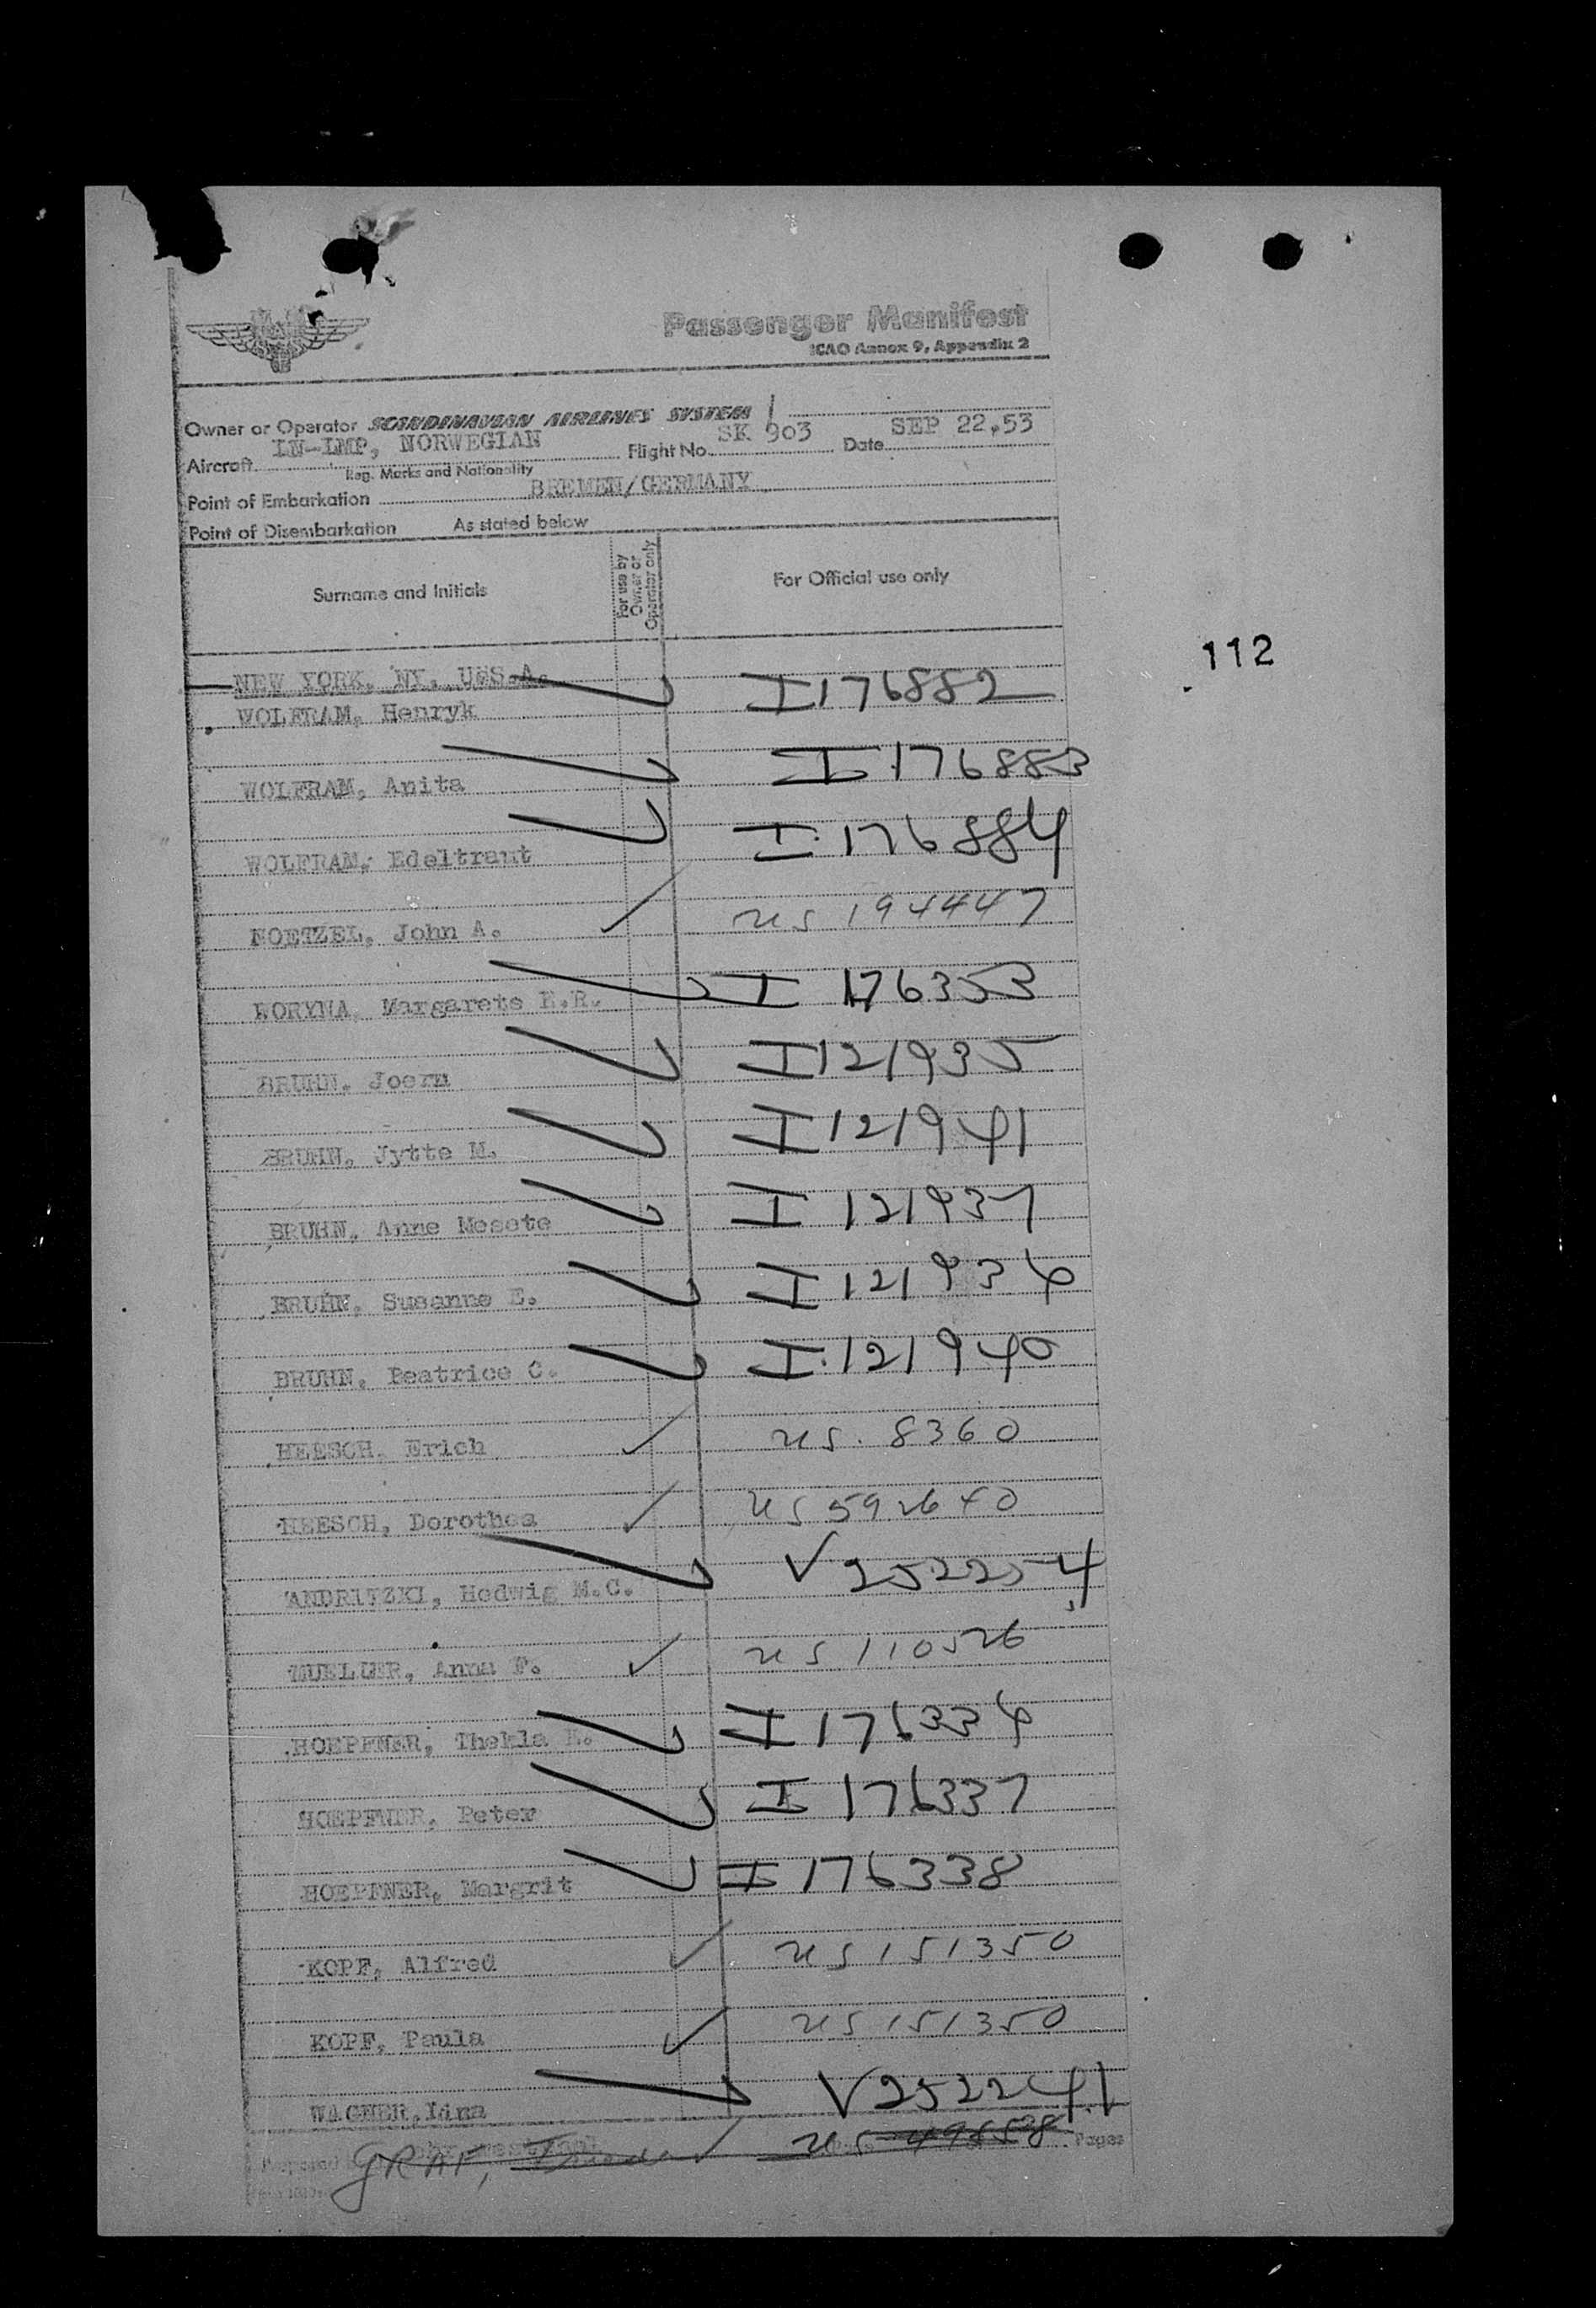 Passenger Manifest
ICAO Annex 9, Appendix 2
Owner or Operator SCANDINAVIAN AIRLINES SYSTEM
Aircraft LN-LMP, NORWEGIAN Flight No. SK 903 Date SEP 22,53
Reg. Marks and Nationality
Point of Embarkation BREMEN/GERMANY
Point of Disembarkation As stated below
Surname and Initials
For use by Owner or Operator only
For Official use only
112
NEW YORK, NY. U.S.A.
WOLFRAM, Henryk I 176882
WOLFRAM, Anita I 176883
WOLFRAM, Edeltraut I 176884
NOETZEL, John A. US 194447
WORYNA, Margarete E.R. I 176353
BRUHN, Joern I 121935
BRUHN, Jytte M. I 121941
BRUHN, Anne I 121937
BRUHN, Susanne E. I 121936
BRUHN, Beatrice C. I 121940
HEESCH, Erich US. 8360
HEESCH, Dorothea US 592640
ANDRITZKI, Hedwig M.C. V 252254
MUELLER, Anna F. US 110526
HOEPFNER, Thekla I 176336
HOEPFNER, Peter I 176337
HOEPFNER, Margrit I 176338
KOPF, Alfred US 151350
KOPF, Paula US 151350
WAGNER, V 252241
GRAF, US 49858 Pages